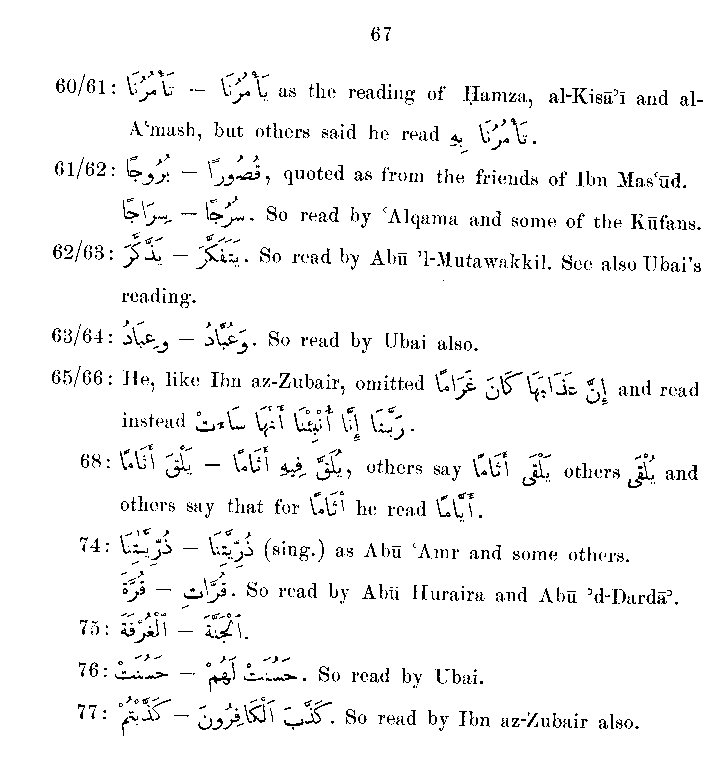 67
60/61: تَأْمُرُنَا — يَأْمُرُنَا as the reading of Ḥamza, al-Kisāʾī and al-
Aʿmash, but others said he read تَأْمُرُنَا بِهِ.
61/62: بُرُوجًا — قُصُورًا, quoted as from the friends of Ibn Masʿūd.
سِرَاجًا — سُرُجًا. So read by ʿAlqama and some of the Kūfans.
62/63: يَذَّكَّرَ — يَتَفَكَّرَ. So read by Abū ʾl-Mutawakkil. See also Ubai's
reading.
63/64: وَعِبَادُ — وَعُبَّادُ. So read by Ubai also.
65/66: He, like Ibn az-Zubair, omitted إِنَّ عَذَابَهَا كَانَ غَرَامًا and read
instead رَبَّنَا إِنَّا أُنْبِئْنَا أَنَّهَا سَاءَتْ.
68: يَلْقَ أَثَامًا — يُلَقَّ فِيهِ أَثَامًا, others say يَلْقَى أَثَامًا others يُلْقَى and
others say that for أَثَامًا he read أَيَّامًا.
74: ذُرِّيَّتِنَا — ذُرِّيَّتِنَا (sing.) as Abū ʿAmr and some others.
قُرَّةَ — قُرَّاتِ. So read by Abū Huraira and Abū ʾd-Dardāʾ.
75: ٱلْغُرْفَةَ — ٱلْجَنَّةَ.
76: حَسُنَتْ — حَسُنَتْ لَهُمْ. So read by Ubai.
77: كَذَّبْتُمْ — كَذَّبَ ٱلْكَافِرُونَ. So read by Ibn az-Zubair also.